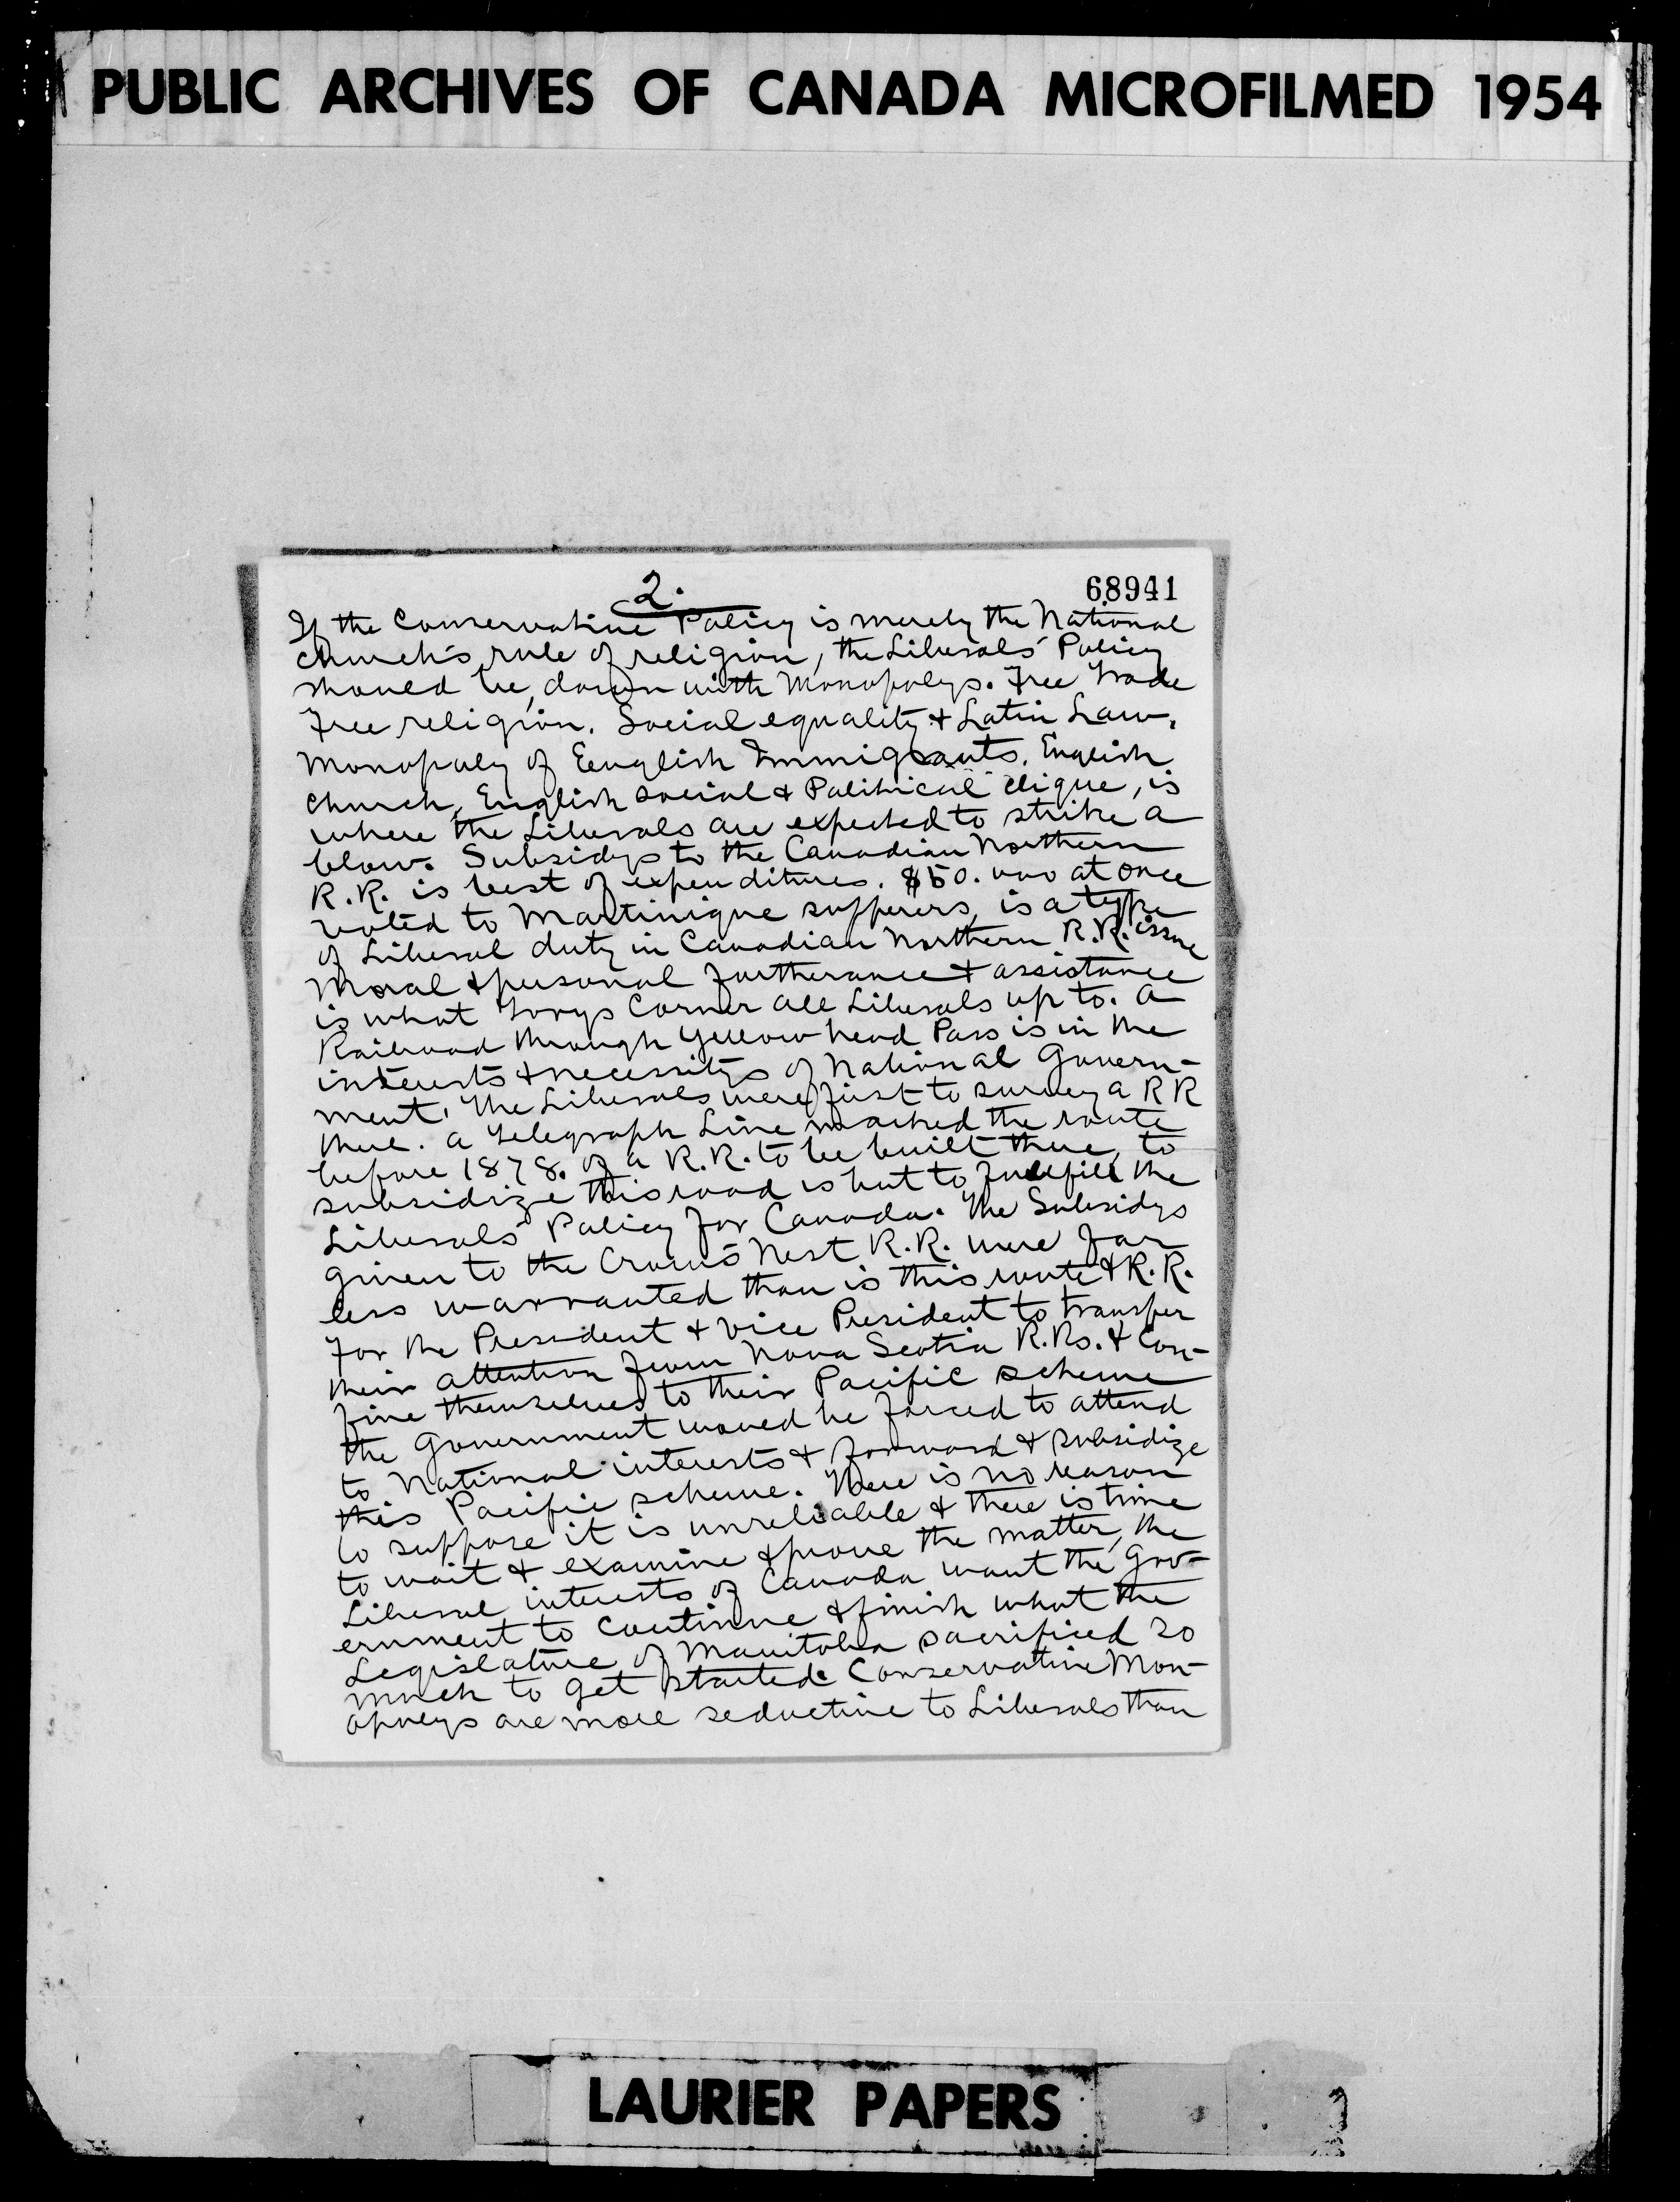 PUBLIC ARCHIVES OF CANADA MICROFILMED 1954
2.
68941
If the Conservative Policy is merely the National
Church's rule of religion, the Liberals' Policy
should be, down with Monopolys. Free Trade
Free religion. Social equality & Latin Law.
Monopoly of Eenglish Immigrants. English
Church, English social & Political clique, is
where the Liberals are expected to strike a
blow. Subsidys to the Canadian Northern
R.R. is best of expenditures. $50.000 at once
voted to Martinique supperers, is a type
of Liberal duty in Canadian Northern R.R. issue
Moral & personal furtherance & assistance
is what Torys Corner all Liberals up to. A
Railroad through Yellow head Pass is in the
interests & necessitys of National Govern-
ment. The Liberals were first to survey a RR
there. A Telegraph Line marked the route
before 1878. of a R.R. to be built there, to
subsidize this road is but to fullfill the
Liberals' Policy for Canada. The Subsidys
given to the Crow's Nest R.R. were far
less warranted than is this route & R.R.
For the President & Vice President to transfer
their attention from Nova Scotia R.Rs. & Con-
fine themselves to their Pacific scheme
the Government would be forced to attend
to National interests & forward & subsidize
this Pacific scheme. There is no reason
to suppose it is unreliable & there is time
to wait & examine & prove the matter, the
Liberal interests of Canada want the Gov-
ernment to Continue & finish what the
Legislature of Manitoba sacrificed so
much to get started. Conservative Mon-
opolys are more seductive to Liberals than
LAURIER PAPERS